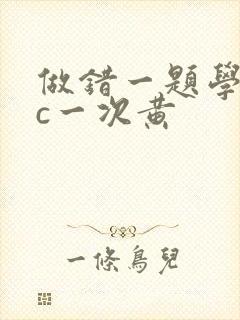 做錯一題學
c一次黃
一條鳥兒